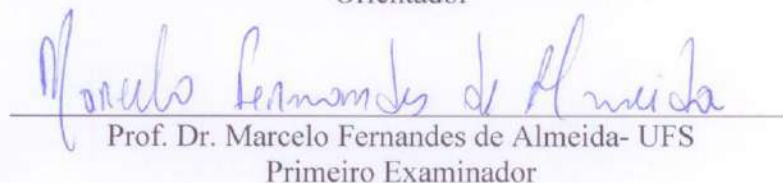 Orientador
Marcelo Fernandes de Almeida
Prof. Dr. Marcelo Fernandes de Almeida- UFS
Primeiro Examinador